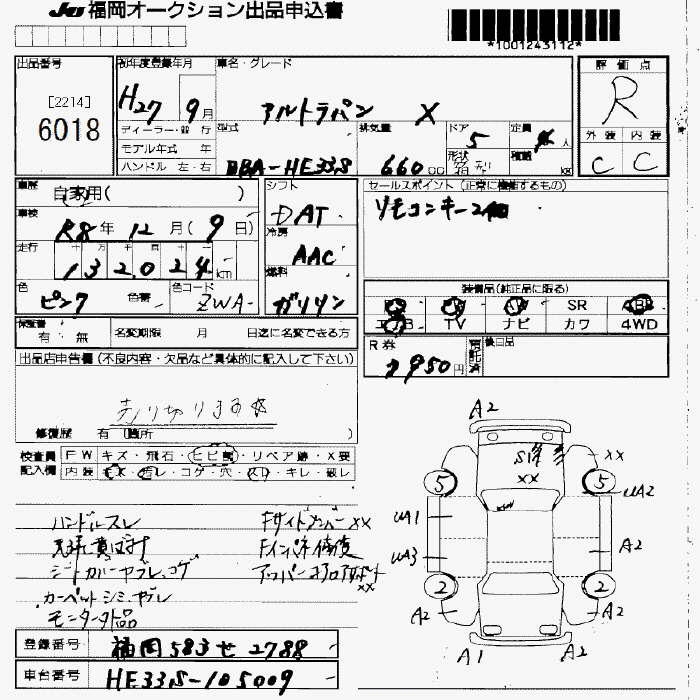 JU 福岡オークション出品申込書
*1001243112*
出品番号
[2214]
6018
初年度登録年月
H27 9月
車名・グレード
アルトラパン X
ディーラー・並行
モデル年式 年
ハンドル 左・右
型式
DBA-HE33S
排気量
660 cc
ドア
5
形状
箱型
定員
4 人
積載
kg
評価点
R
外装 内装
C C
車歴
自家用( )
車検
R8年 12月(9日)
走行
十 万 千 百 十 一
132024 km
色
ピンク
色番
色コード
ZWA
シフト
DAT
冷房
AAC
燃料
ガソリン
セールスポイント(正常に機能するもの)
リモコンキー2個
装備品(純正品に限る)
SR ABB
TV ナビ カワ 4WD
保証書
有・無
名変期限 月 日迄に名変できる方
R券
7950円
預託済
後日品
出品店申告欄(不良内容・欠品など具体的に記入して下さい)
売り切ります☆
修復歴 有(箇所 )
検査員
記入欄
FW キズ・飛石・ヒビ割・リペア跡・X要
内装 コゲ・穴・キレ・破レ
ハンドルスレ
シートカバーヤブレ、コゲ
カーペットシミ、ヤブレ
モニター欠品
FサイドメンバーXX
Fインパネ修復
XX
A2
S1
XX
XX
5
5
UA2
UA1
UA3
A2
2
2
A2
A2
A1
A2
登録番号
福岡 583 せ 2788
車台番号
HE33S-105009